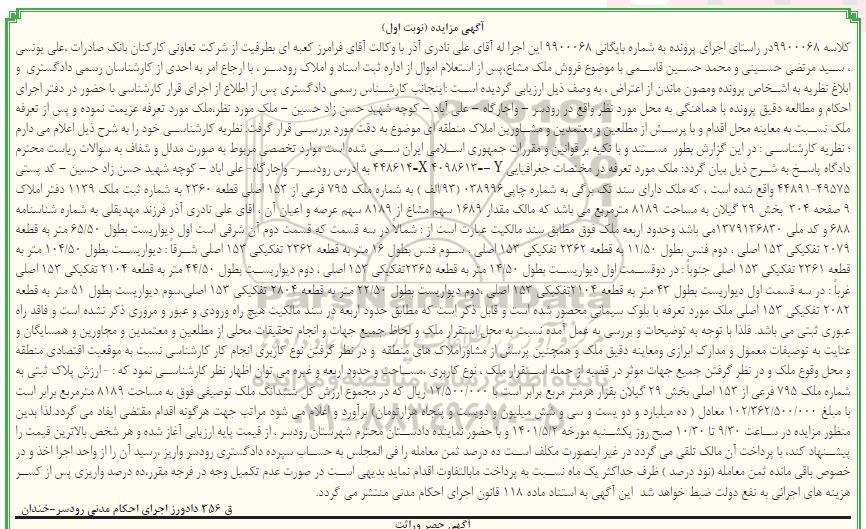 آگهی مزایده (نوبت اول)
کلاسه ۹۹۰۰۰۶۸در راستای اجرای پرونده به شماره بایگانی ۹۹۰۰۰۶۸ این اجرا له آقای علی نادری آذر با وکالت آقای فرامرز کعبه ای بطرفیت از شرکت تعاونی کارکنان بانک صادرات ،علی یونسی
، سید مرتضی حسینی و محمد حسین قاسمی با موضوع فروش ملک مشاع،پس از استعلام اموال از اداره ثبت اسناد و املاک رودسر ، با ارجاع امر به احدی از کارشناسان رسمی دادگستری و
ابلاغ نظریه به اشخاص پرونده ومصون ماندن از اعتراض ، به وصف ذیل ارزیابی گردیده است :اینجانب کارشناس رسمی دادگستری پس از اطلاع از اجرای قرار کارشناسی با حضور در دفتر اجرای
احکام و مطالعه دقیق پرونده با هماهنگی به محل مورد نظر واقع در رودسر – واجارگاه – علی آباد – کوچه شهید حسن زاد حسین – ملک مورد نظر،ملک مورد تعرفه عزیمت نموده و پس از تعرفه
ملک نسبت به معاینه محل اقدام و با پرسش از مطلعین و معتمدین و مشاورین املاک منطقه ای موضوع به دقت مورد بررسی قرار گرفت. نظریه کارشناسی خود را به شرح ذیل اعلام می دارم
؛ نظریه کارشناسی : در این گزارش بطور مستند و با تکیه بر قوانین و مقررات جمهوری اسلامی ایران سعی شده است موارد تخصصی مربوط به صورت مدلل و شفاف به سوالات ریاست محترم
دادگاه پاسخ به شرح ذیل بیان گردد: ملک مورد تعرفه در مختصات جغرافیایی Y –۴۰۹۸۶۱۳ X-۴۴۸۶۱۴ به آدرس رودسر- واجارگاه- علی آباد – کوچه شهید حسن زاد حسین – کد پستی
۴۹۵۷۵-۴۴۸۹۱ واقع شده است ، که ملک دارای سند تک برگی به شماره چاپی۰۳۸۹۹۶ (۹۳/الف ) به شماره ملک ۷۹۵ فرعی از ۱۵۳ اصلی قطعه ۲۳۶۰ به شماره ثبت ملک ۱۱۳۹ دفتر املاک
۹ صفحه ۳۰۴ بخش ۲۹ گیلان به مساحت ۸۱۸۹ مترمربع می باشد که مالک مقدار ۱۶۸۹ سهم مشاع از ۸۱۸۹ سهم عرصه و اعیان آن ، آقای علی نادری آذر فرزند مهدیقلی به شماره شناسنامه
۶۸۸ و کد ملی ۱۳۷۹۱۳۶۸۳۰می باشد وحدود اربعه ملک فوق مطابق سند مالکیت عبارت است از : شمالاً در سه قسمت که قسمت دوم آن شرقی است اول دیواریست بطول ۶۵/۵۰ متر به قطعه
۲۰۷۹ تفکیکی ۱۵۳ اصلی ، دوم فنس بطول ۱۱/۵۰ به قطعه ۲۳۶۲ تفکیکی ۱۵۳ اصلی ، سوم فنس بطول ۱۶ متر به قطعه ۲۳۶۲ تفکیکی ۱۵۳ اصلی شرقاً : دیواریست بطول ۱۰۴/۵۰ متر به
قطعه ۲۳۶۱ تفکیکی ۱۵۳ اصلی جنوباً : در دوقسمت اول دیواریست بطول ۱۴/۵۰ متر به قطعه ۲۳۶۵تفکیکی ۱۵۳ اصلی ، دوم دیواریست بطول ۴۴/۵۰ متر به قطعه ۲۱۰۴ تفکیکی ۱۵۳ اصلی
غرباً : در سه قسمت اول دیواریست بطول ۴۳ متر به قطعه ۲۱۰۴تفکیکی ۱۵۳ اصلی ،دوم دیواریست بطول ۲۲/۵۰ متر به قطعه ۲۸۰۴ تفکیکی ۱۵۳ اصلی،سوم دیواریست بطول ۵۱ متر به قطعه
۲۰۸۲ تفکیکی ۱۵۳ اصلی ملک مورد تعرفه با بلوک سیمانی محصور شده است و قابل ذکر است که مطابق حدود اربعه در سند مالکیت هیچ راه ورودی و عبور و مروری ذکر نشده است و فاقد راه
عبوری ثبتی می باشد. فلذا با توجه به توضیحات و بررسی به عمل آمده نسبت به محل استقرار ملک و لحاظ جمیع جهات و انجام تحقیقات محلی از مطلعین و معتمدین و مجاورین و همسایگان و
عنایت به توصیفات معمول و مدارک ابرازی ومعاینه دقیق ملک و همچنین پرسش از مشاوراملاک های منطقه و در نظر گرفتن نوع کاربری انجام کار کارشناسی نسبت به موقعیت اقتصادی منطقه
و محل وقوع ملک و در نظر گرفتن جمیع جهات موثر در قضیه از جمله استقرار ملک ، نوع کاربری ،مساحت و حدود اربعه و غیره می توان اظهار نظر کارشناسی نمود که : - ارزش پلاک ثبتی به
شماره ملک ۷۹۵ فرعی از ۱۵۳ اصلی بخش ۲۹ گیلان بقرار هرمتر مربع برابر است با ۱۲/۵۰۰/۰۰۰ ریال که در مجموع ارزش کل ششدانگ ملک توصیفی فوق به مساحت ۸۱۸۹ مترمربع برابر است
با مبلغ ۱۰۲/۳۶۲/۵۰۰/۰۰۰ معادل ( ده میلیارد و دو یست و سی و شش میلیون و دویست و پنجاه هزارتومان) برآورد و اعلام می شود مراتب جهت هرگونه اقدام مقتضی ایفاد می گردد.لذا بدین
منظور مزایده در ساعت ۹/۳۰ تا ۱۰/۳۰ صبح روز یکشنبه مورخه ۱۴۰۱/۵/۲ و با حضور نماینده دادستان محترم شهرستان رودسر ، از قیمت پایه ارزیابی آغاز شده و هر شخص بالاترین قیمت را
پیشنهاد کند، با پرداخت آن مالک تلقی می گردد در غیر اینصورت مکلف است ده درصد ثمن معامله را فی المجلس به حساب سپرده دادگستری رودسر واریز ،رسید آن را از واحد اجرا اخذ و در
خصوص باقی مانده ثمن معامله (نود درصد ) ظرف حداکثر یک ماه نسبت به پرداخت مابالتفاوت اقدام نماید بدیهی است در صورت عدم تکمیل وجه در فرجه مقرر،ده درصد واریزی پس از کسر
هزینه های اجرائی به نفع دولت ضبط خواهد شد این آگهی به استناد ماده ۱۱۸ قانون اجرای احکام مدنی منتشر می گردد.
ق ۳۵۶ دادورز اجرای احکام مدنی رودسر-خندان
آگهی حصر وراثت